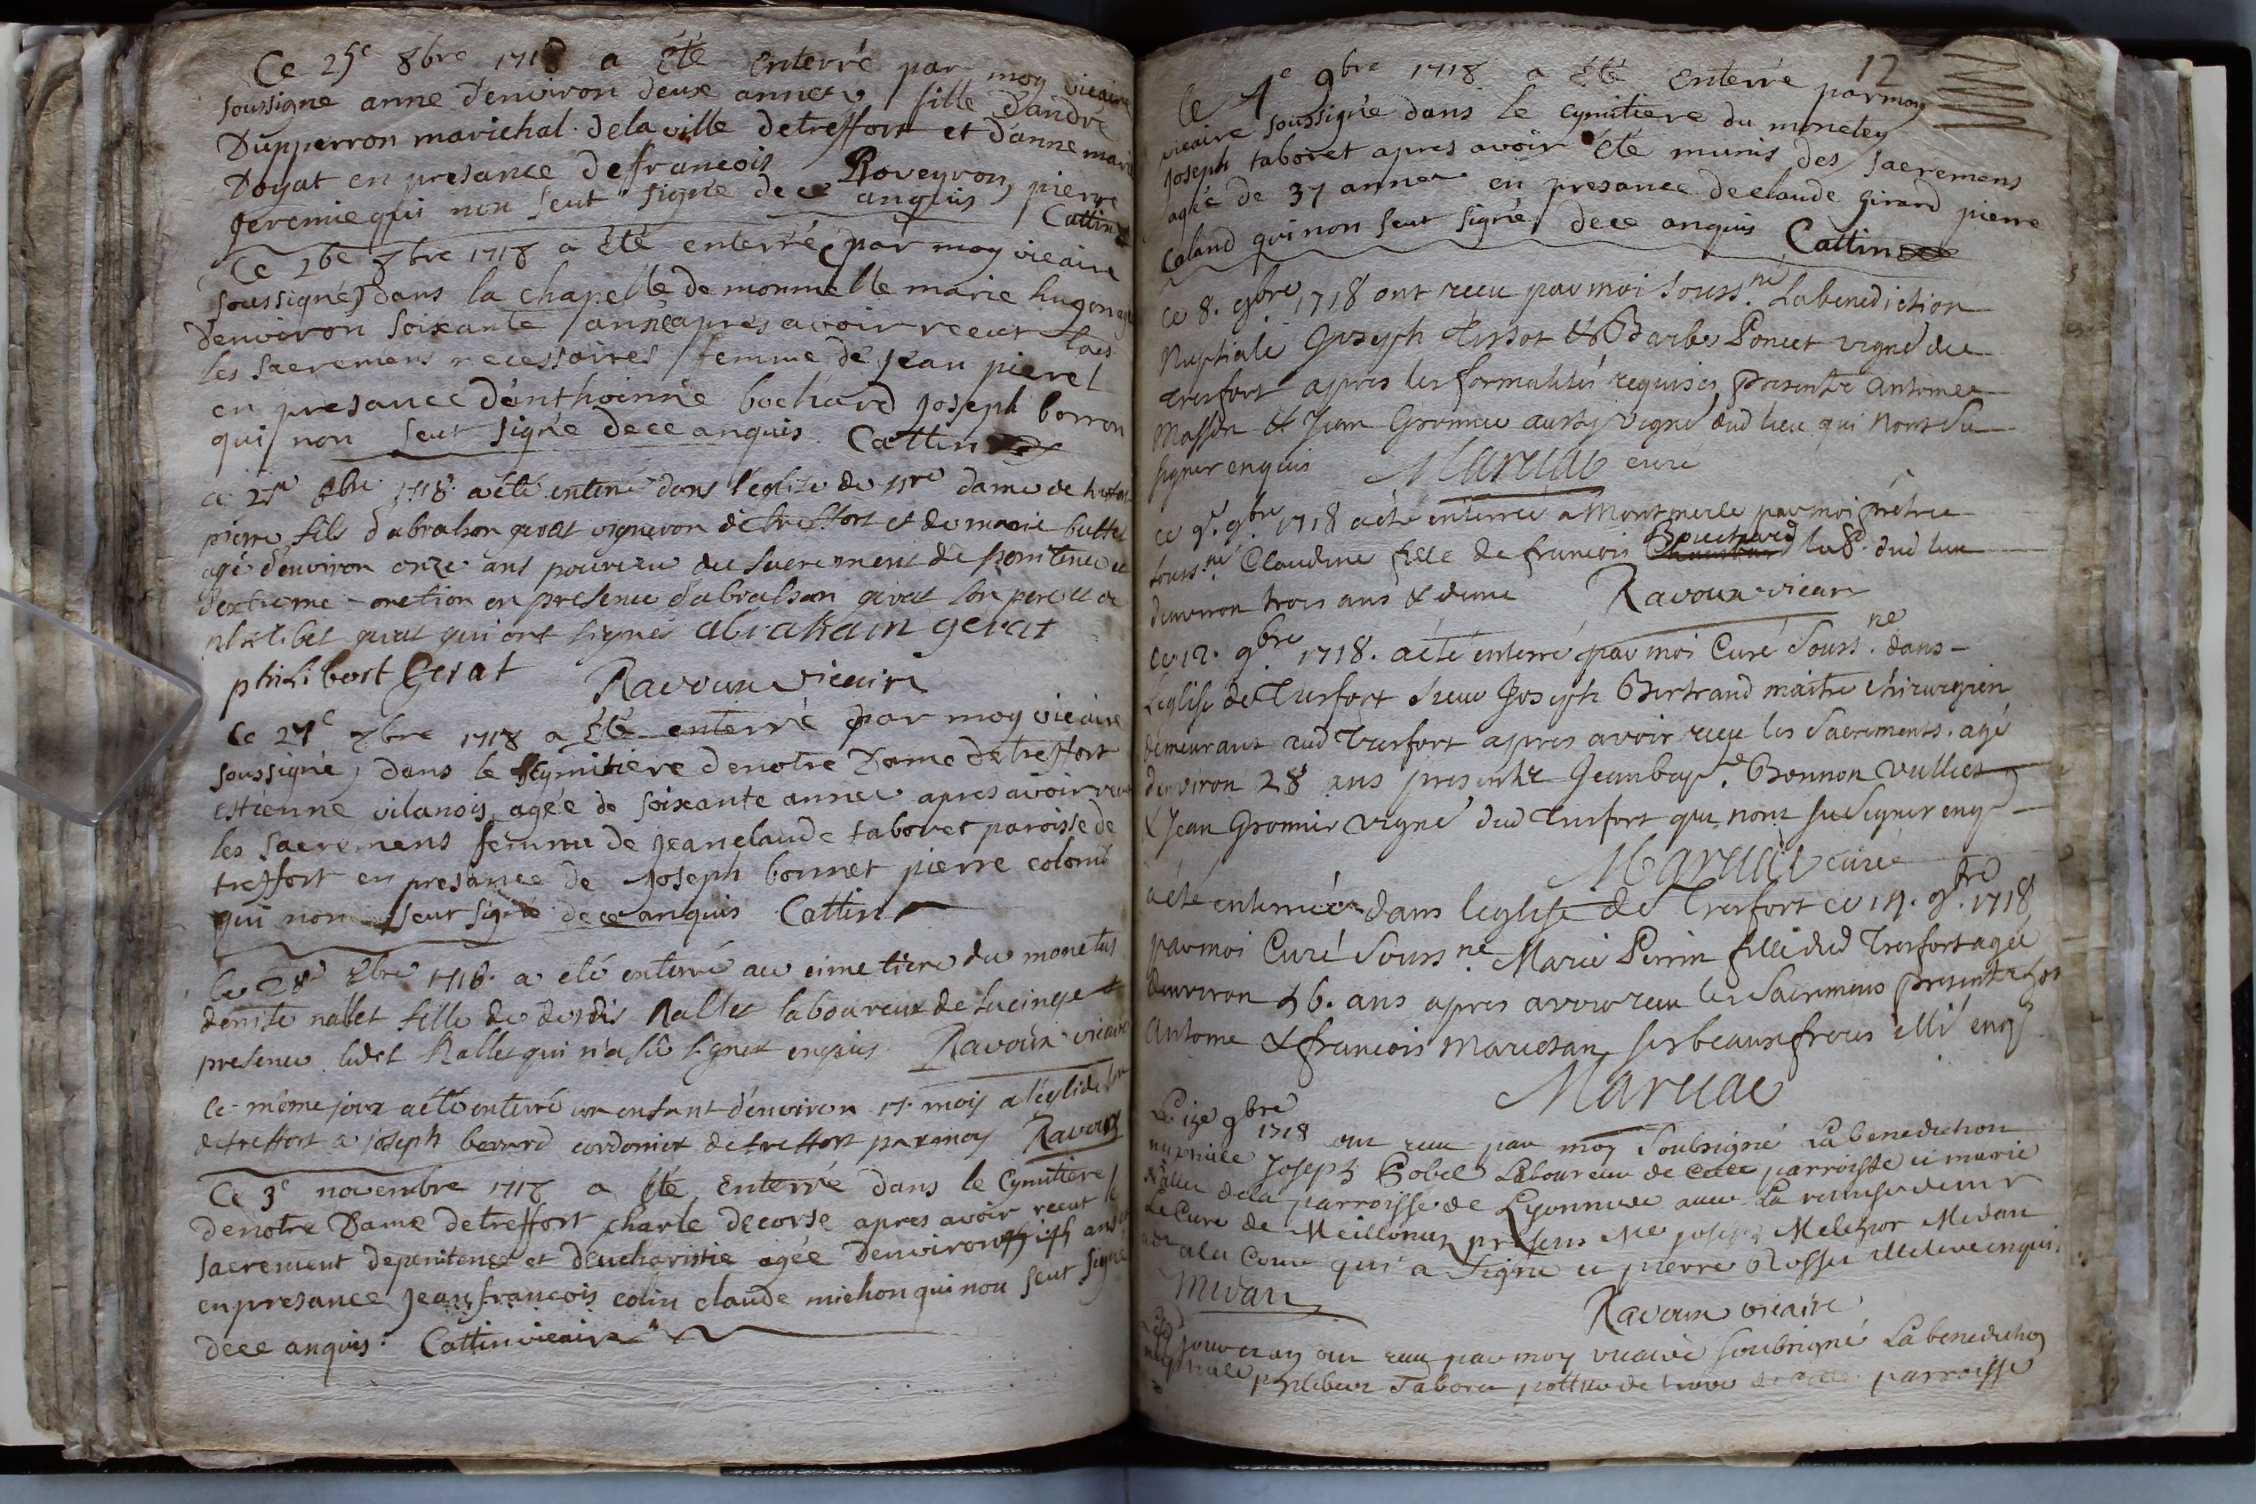 Ce 25e 8bre 1718 a été enterré par moy vicaire
soussigné anne d'environ deux annet fille d'andre
Dupperron marichal de la ville de treffort et d'anne marie
Doyat en presance de francois Roveyron, pierre
Jeremie qui non seut signé de ce anquis Cattin
Ce 26e 8bre 1718 a été enterré par moy vicaire
soussigné dans la chapelle de monmelle marie hugon
d'environ soixante année apres avoir receut tous
les sacremens necessaires femme de jean pieret
en presance d'anthoinne bochard Joseph borron
qui non seut signé de ce anquis Cattin
ce 8bre 1718 a été enterré dans l'eglise de nre dame de
pierre fils d'abraham gerat vigneron de treffort et de marie
agé d'environ onze ans pourveu du sacrement de penitence et
d'extreme-onction en presence d'abraham gerat son pere et de
philibet gerat qui ont signés abraham gerat
philibert Gerat Ravoux vicaire
Ce 27e 8bre 1718 a été enterré par moy vicaire
soussigné, dans le cymitiere de notre Dame de treffort
estienne vilanois agée de soixante annee apres avoir receu
les sacremens femme de jeanclaude taboret paroisse de
treffort en presance de Joseph bonnet pierre colomb
qui non seut signé de ce anquis Cattin
le 28e 8bre 1718 a eté enterré au cimetiere du monetay
denise nallet fille de denis Nallet laboureur de lucinge
presence ludet Nallet qui n'a sû signer enquis Ravoux vicaire
Ce même jour a été enterré un enfant d'environ mois a l'eglise
de treffort a joseph bevard cordonier de treffort par moy Ravoux
Ce 3e novembre 1718 a été enterré dans le Cymitiere
de notre Dame de treffort charle decorse apres avoir receut le
sacrement de penitence et d'eucharistie agée d'environ ans
en presance jean francois colin claude michon qui non seut signé
de ce anquis: Cattin vicaire
12
le 9bre 1718 a été enterré par moy
vicaire soussignée dans le cymitiere du monetey
Joseph taboret apres avoir été munis des sacremens
agée de 37 annee en presance de claude girard pierre
Coland qui non seut signée de ce anquis Cattin
ce 8. 9bre 1718 ont receu par moi sousné La benediction
Nuptiale Joseph Tissot & Barbe Poncet vigné de
Tresfort apres les formalités requises presente Antoine
Masson & Jean Gromier aussy vigné dud lieu qui nont su
signer enquis Maruat curé
ce 9e 9bre 1718 a été enterrée a Montmerle par moi prêtre
soussné Claudine fille de francois Bouchard dud lieu
d'environ trois ans & demi Ravoux vicaire
ce 12. 9bre 1718. a été enterré par moi Curé Sousné dans
L'eglise de Tresfort sieur Joseph Bertrand maitre chirurgien
demeurant aud Tresfort apres avoir receu les sacrements. agé
d'environ 28 ans presente Jeanbapte Bonnon Valliet
& Jean Gromier vigné dud Tresfort qui nont su signer enq
Maruat curé
a été enterrée dans l'eglise de Tresfort ce 9bre 1718
par moi Curé Sousné Marie Perrin fille dud Tresfort agée
d'environ ans apres avoir receu les Sacremens presente
Antoine & francois Maresan ses beaux freres enq
Maruat
9bre 1718 ont receu par moy soubsigné La benediction
nuptiale Joseph Bobel Laboureur de cette parroisse et marie
Nallet de la parroisse de avec La remise de mr
Le Curé de Meillonas presens Me joseph Melchior Midan
a la Cour qui a signé et pierre Rosset enquis.
Midan Ravoux vicaire
ont receu par moy vicaire soubsigné La benediction
nuptiale philibert Taboret parroisse